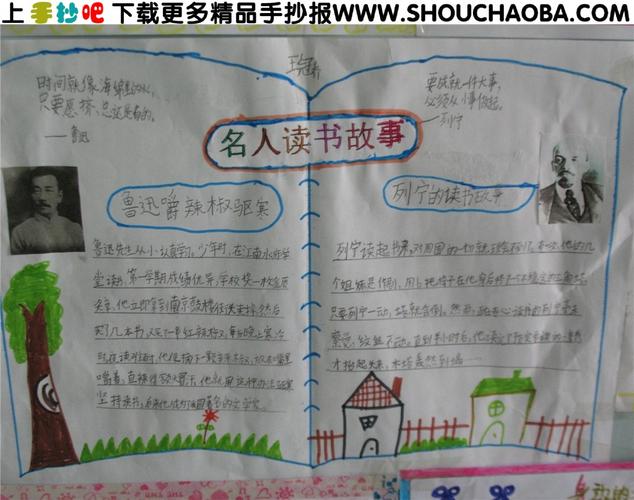 上 手抄吧 下载更多精品手抄报WWW.SHOUCHAOBA.COM
时间就像海绵里的水,
只要愿挤,总还是有的。
——鲁迅
要成就一件大事,
必须从小事做起。
——列宁
名人读书故事
鲁迅嚼辣椒驱寒
鲁迅先生从小认真学习。少年时,在江南水师学
堂读书,第一学期成绩优异,学校奖一枚金质
奖章。他立即拿到南京鼓楼街头卖掉,然后
买了几本书,又买了一串红辣椒。每当晚上寒冷
时,夜读难耐,他便摘下一颗辣椒,放在嘴里
嚼着,直辣得额头冒汗。他就用这种办法驱寒
坚持读书,后来他成为我国著名的文学家。
列宁的读书故事
列宁读起书来,对周围的一切就
个姐妹
只要列宁一动,
察觉,纹丝不动,直到半小时后,他读完了
才抬起头来,木塔轰然到塌……